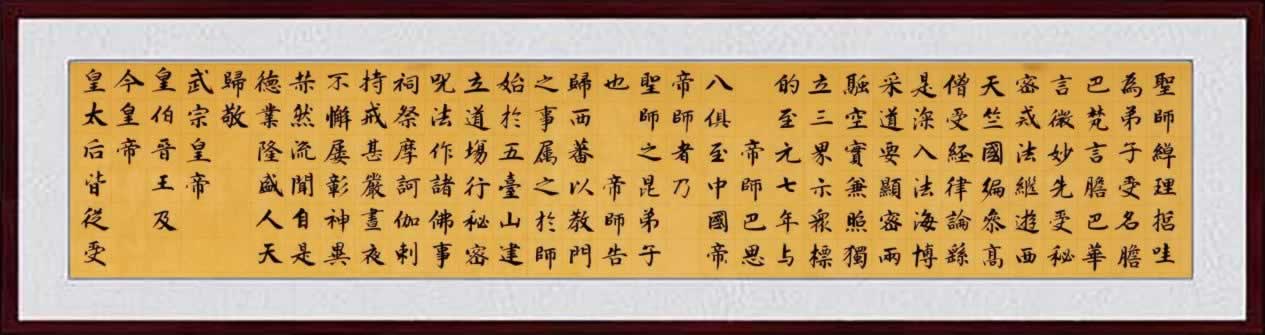 聖師綽理哲哇
為弟子受名膽
巴梵言膽巴華
言微妙先受秘
密戒法継遊西
天竺國徧叅髙
僧受経律論繇
是深入法海博
采道要顯密兩
融空實兼照獨
立三界示衆標
的至元七年与
帝師巴思
八俱至中國帝
帝師者乃
聖師之昆弟子
也 帝師告
歸西蕃以教門
之事属之於師
始於五臺山建
立道場行秘密
呪法作諸佛事
祠祭摩訶伽剌
持戒甚嚴晝夜
不懈屢彰神異
赫然流聞自是
德業隆盛人天
歸敬
武宗皇帝
皇伯晉王及
今皇帝
皇太后皆從受